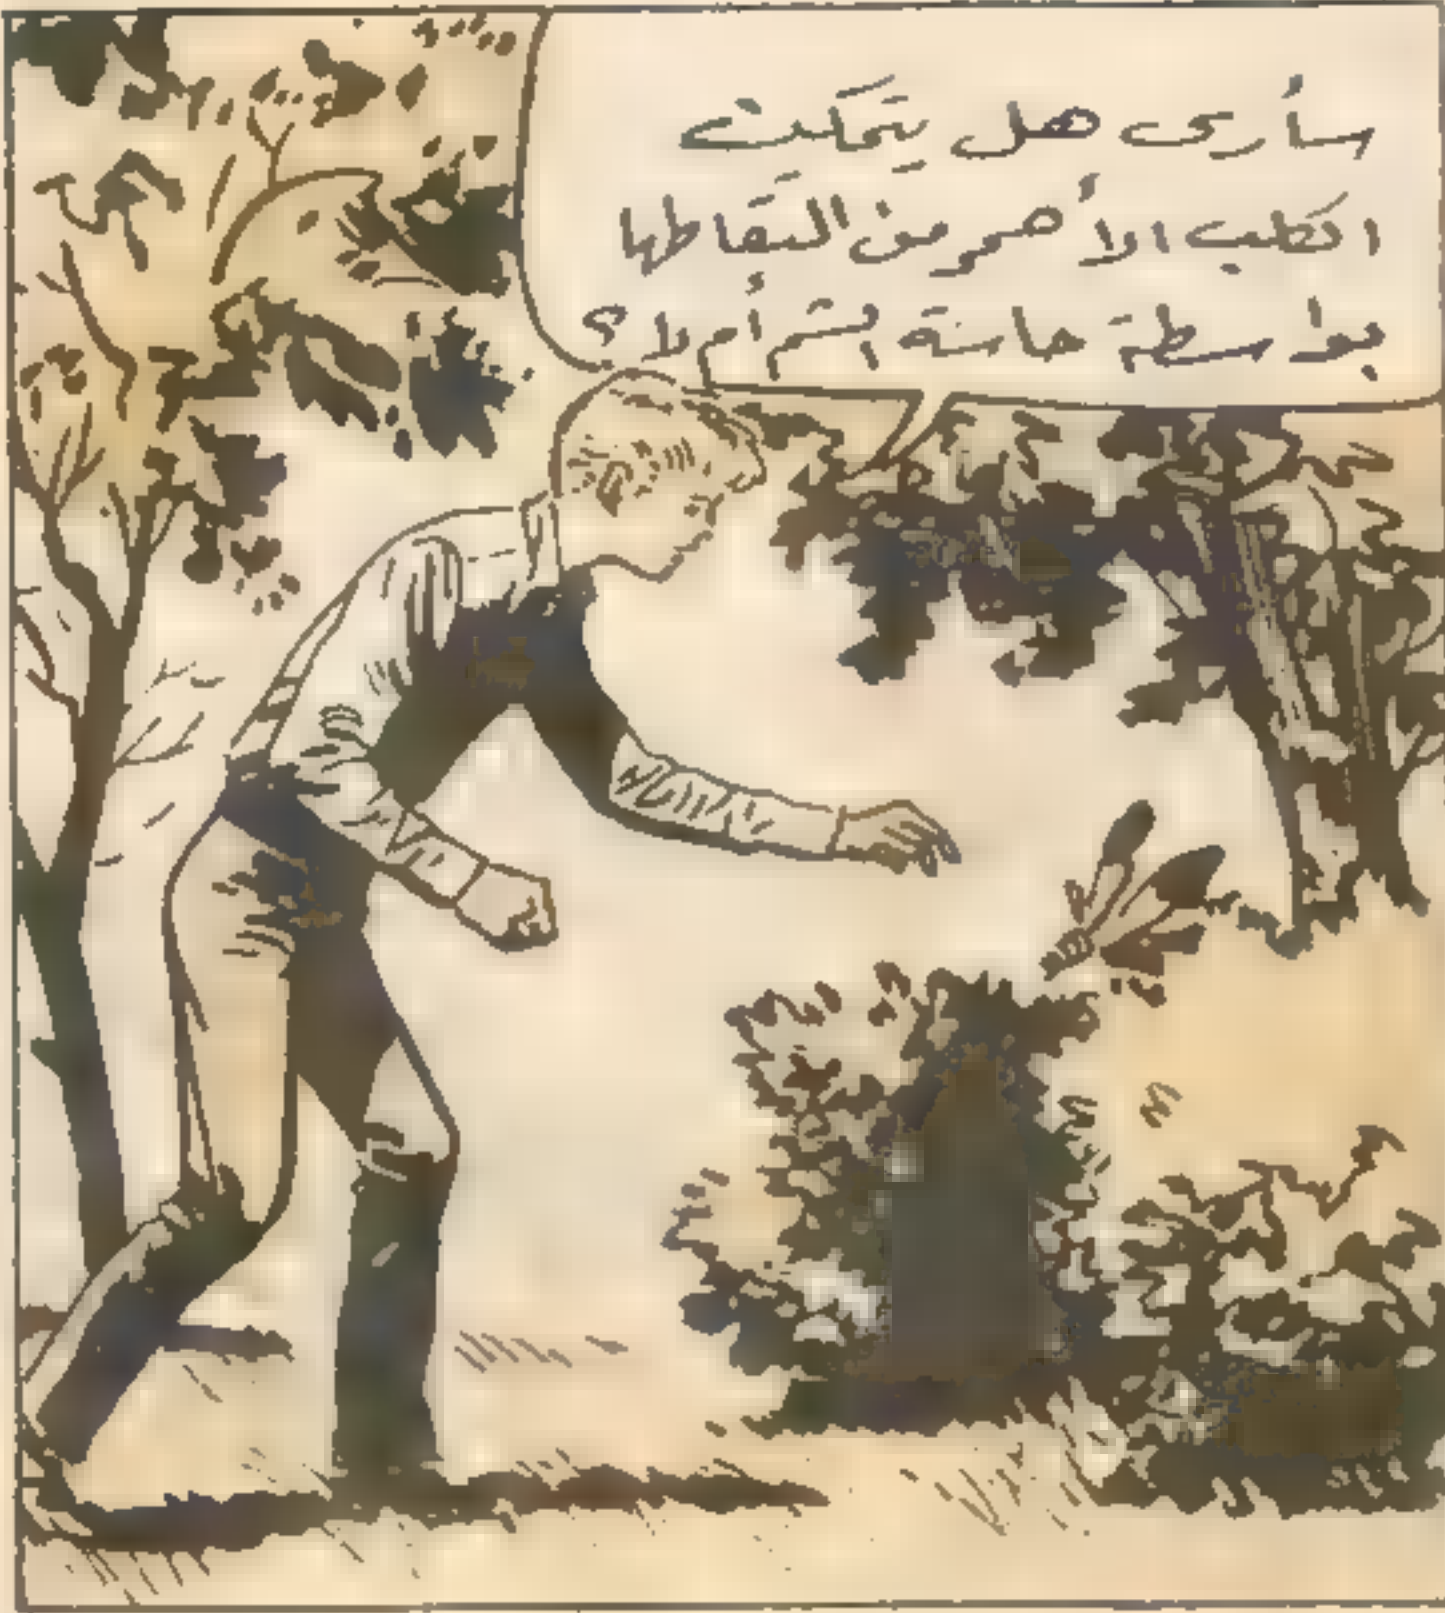 سأرى هل يتمكن
الكلب الأحمر من التقاطها
بواسطة حاسة الشم أم لا ؟